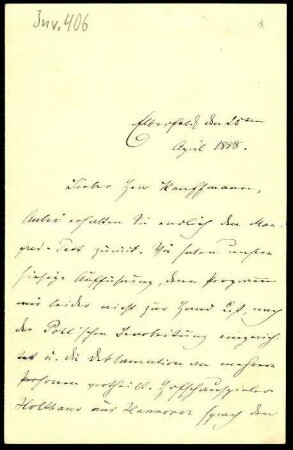 Inv. 406
Elberfeld, den 25ten
April 1888.
Lieber Herr Kauffmann,
Anbei erhalten Sie endlich den Man-
fred-Text zurück. Wir haben unsere
hiesige Aufführung, deren Programm
mir leider nicht zur Hand ist, nach
der Pohl'schen Bearbeitung eingerich-
tet u. die Deklamation an mehrere
Personen vertheilt. Hofschauspieler
Holthaus aus Hannover sprach den